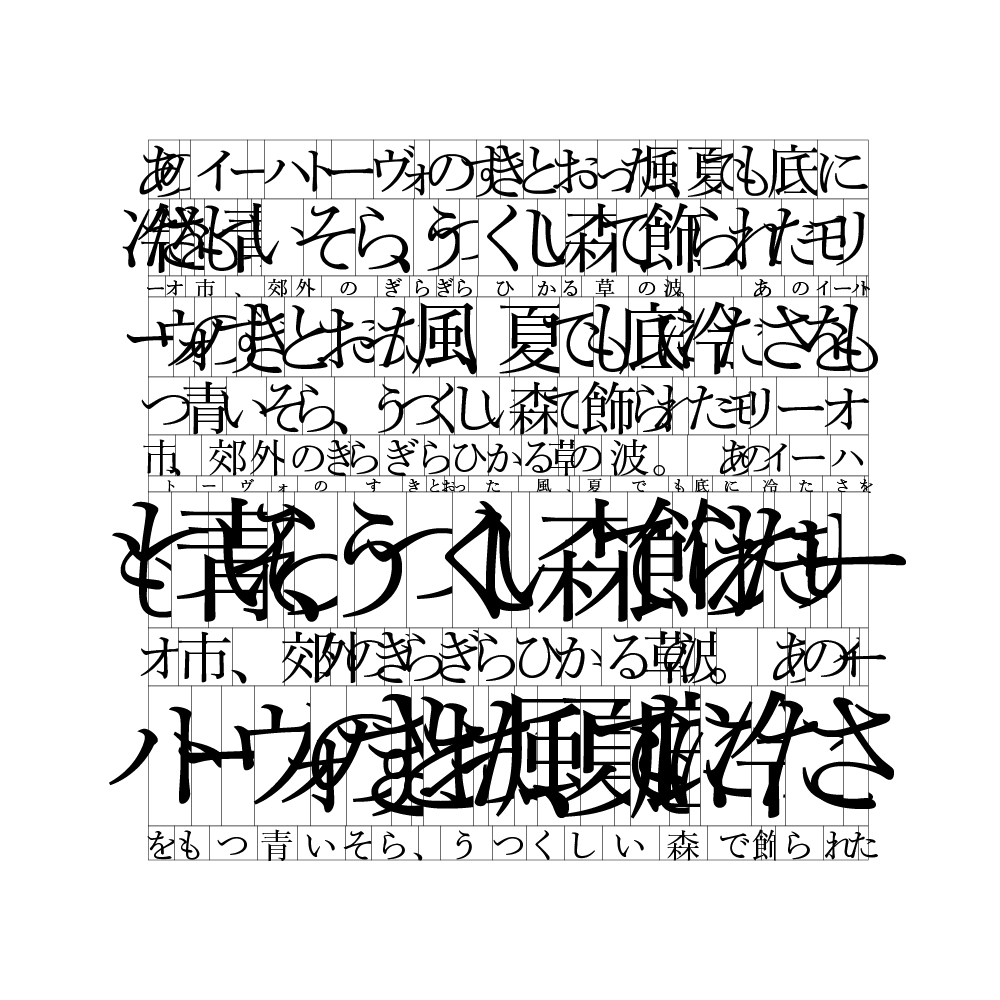 あのイーハトーヴォのすきとおった風、夏でも底に
冷たさをもつ青いそら、うつくしい森で飾られたモリ
ーオ市、郊外のぎらぎらひかる草の波。　あのイーハト
ーヴォのすきとおった風、夏でも底に冷たさをも
つ青いそら、うつくしい森で飾られたモリーオ
市、郊外のぎらぎらひかる草の波。　あのイーハ
トーヴォのすきとおった風、夏でも底に冷たさを
もつ青いそら、うつくしい森で飾られたモリー
オ市、郊外のぎらぎらひかる草の波。　あのイー
ハトーヴォのすきとおった風、夏でも底に冷たさ
をもつ青いそら、うつくしい森で飾られた